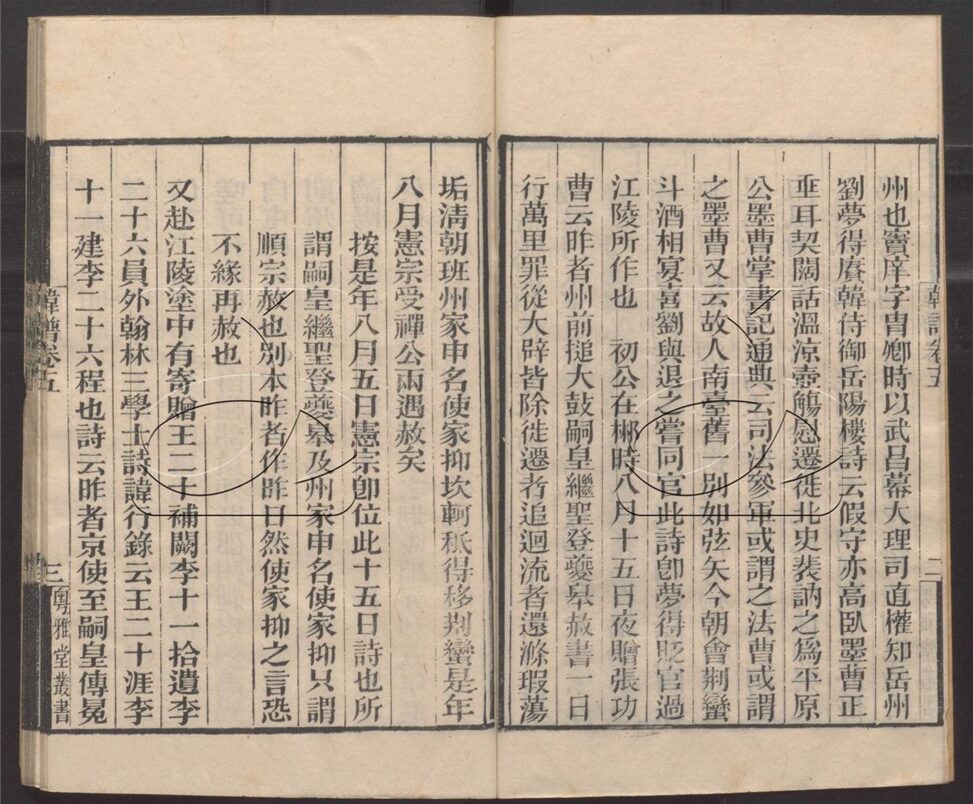 州也竇庠字胄卿時以武昌幕大理司直權知岳州
劉夢得賡韓侍御岳陽樓詩云假守亦高臥墨曹正
垂耳契闊話溫涼壺觴慰遷徙北史裴訥之爲平原
公墨曹掌書記通典云司法參軍或謂之法曹或謂
之墨曹又云故人南臺舊一別如弦矢今朝會荆蠻
斗酒相宴喜劉與退之嘗同官此詩卽夢得貶官過
江陵所作也　初公在郴時八月十五日夜贈張功
曹云昨者州前搥大鼓嗣皇繼聖登夔皋赦書一日
行萬里罪從大辟皆除徙遷者追迴流者還滌瑕蕩
垢淸朝班州家申名使家抑坎軻秪得移荆蠻是年
八月憲宗受禪公兩遇赦矣
按是年八月五日憲宗卽位此十五日詩也所
謂嗣皇繼聖登夔皋及州家申名使家抑只謂
順宗赦也別本昨者作昨日然使家抑之言恐
不緣再赦也
又赴江陵塗中有寄贈王二十補闕李十一拾遺李
二十六員外翰林三學士詩諱行錄云王二十涯李
十一建李二十六程也詩云昨者京使至嗣皇傳冕
韓譜卷五
三
粵雅堂叢書
韓譜卷五
二